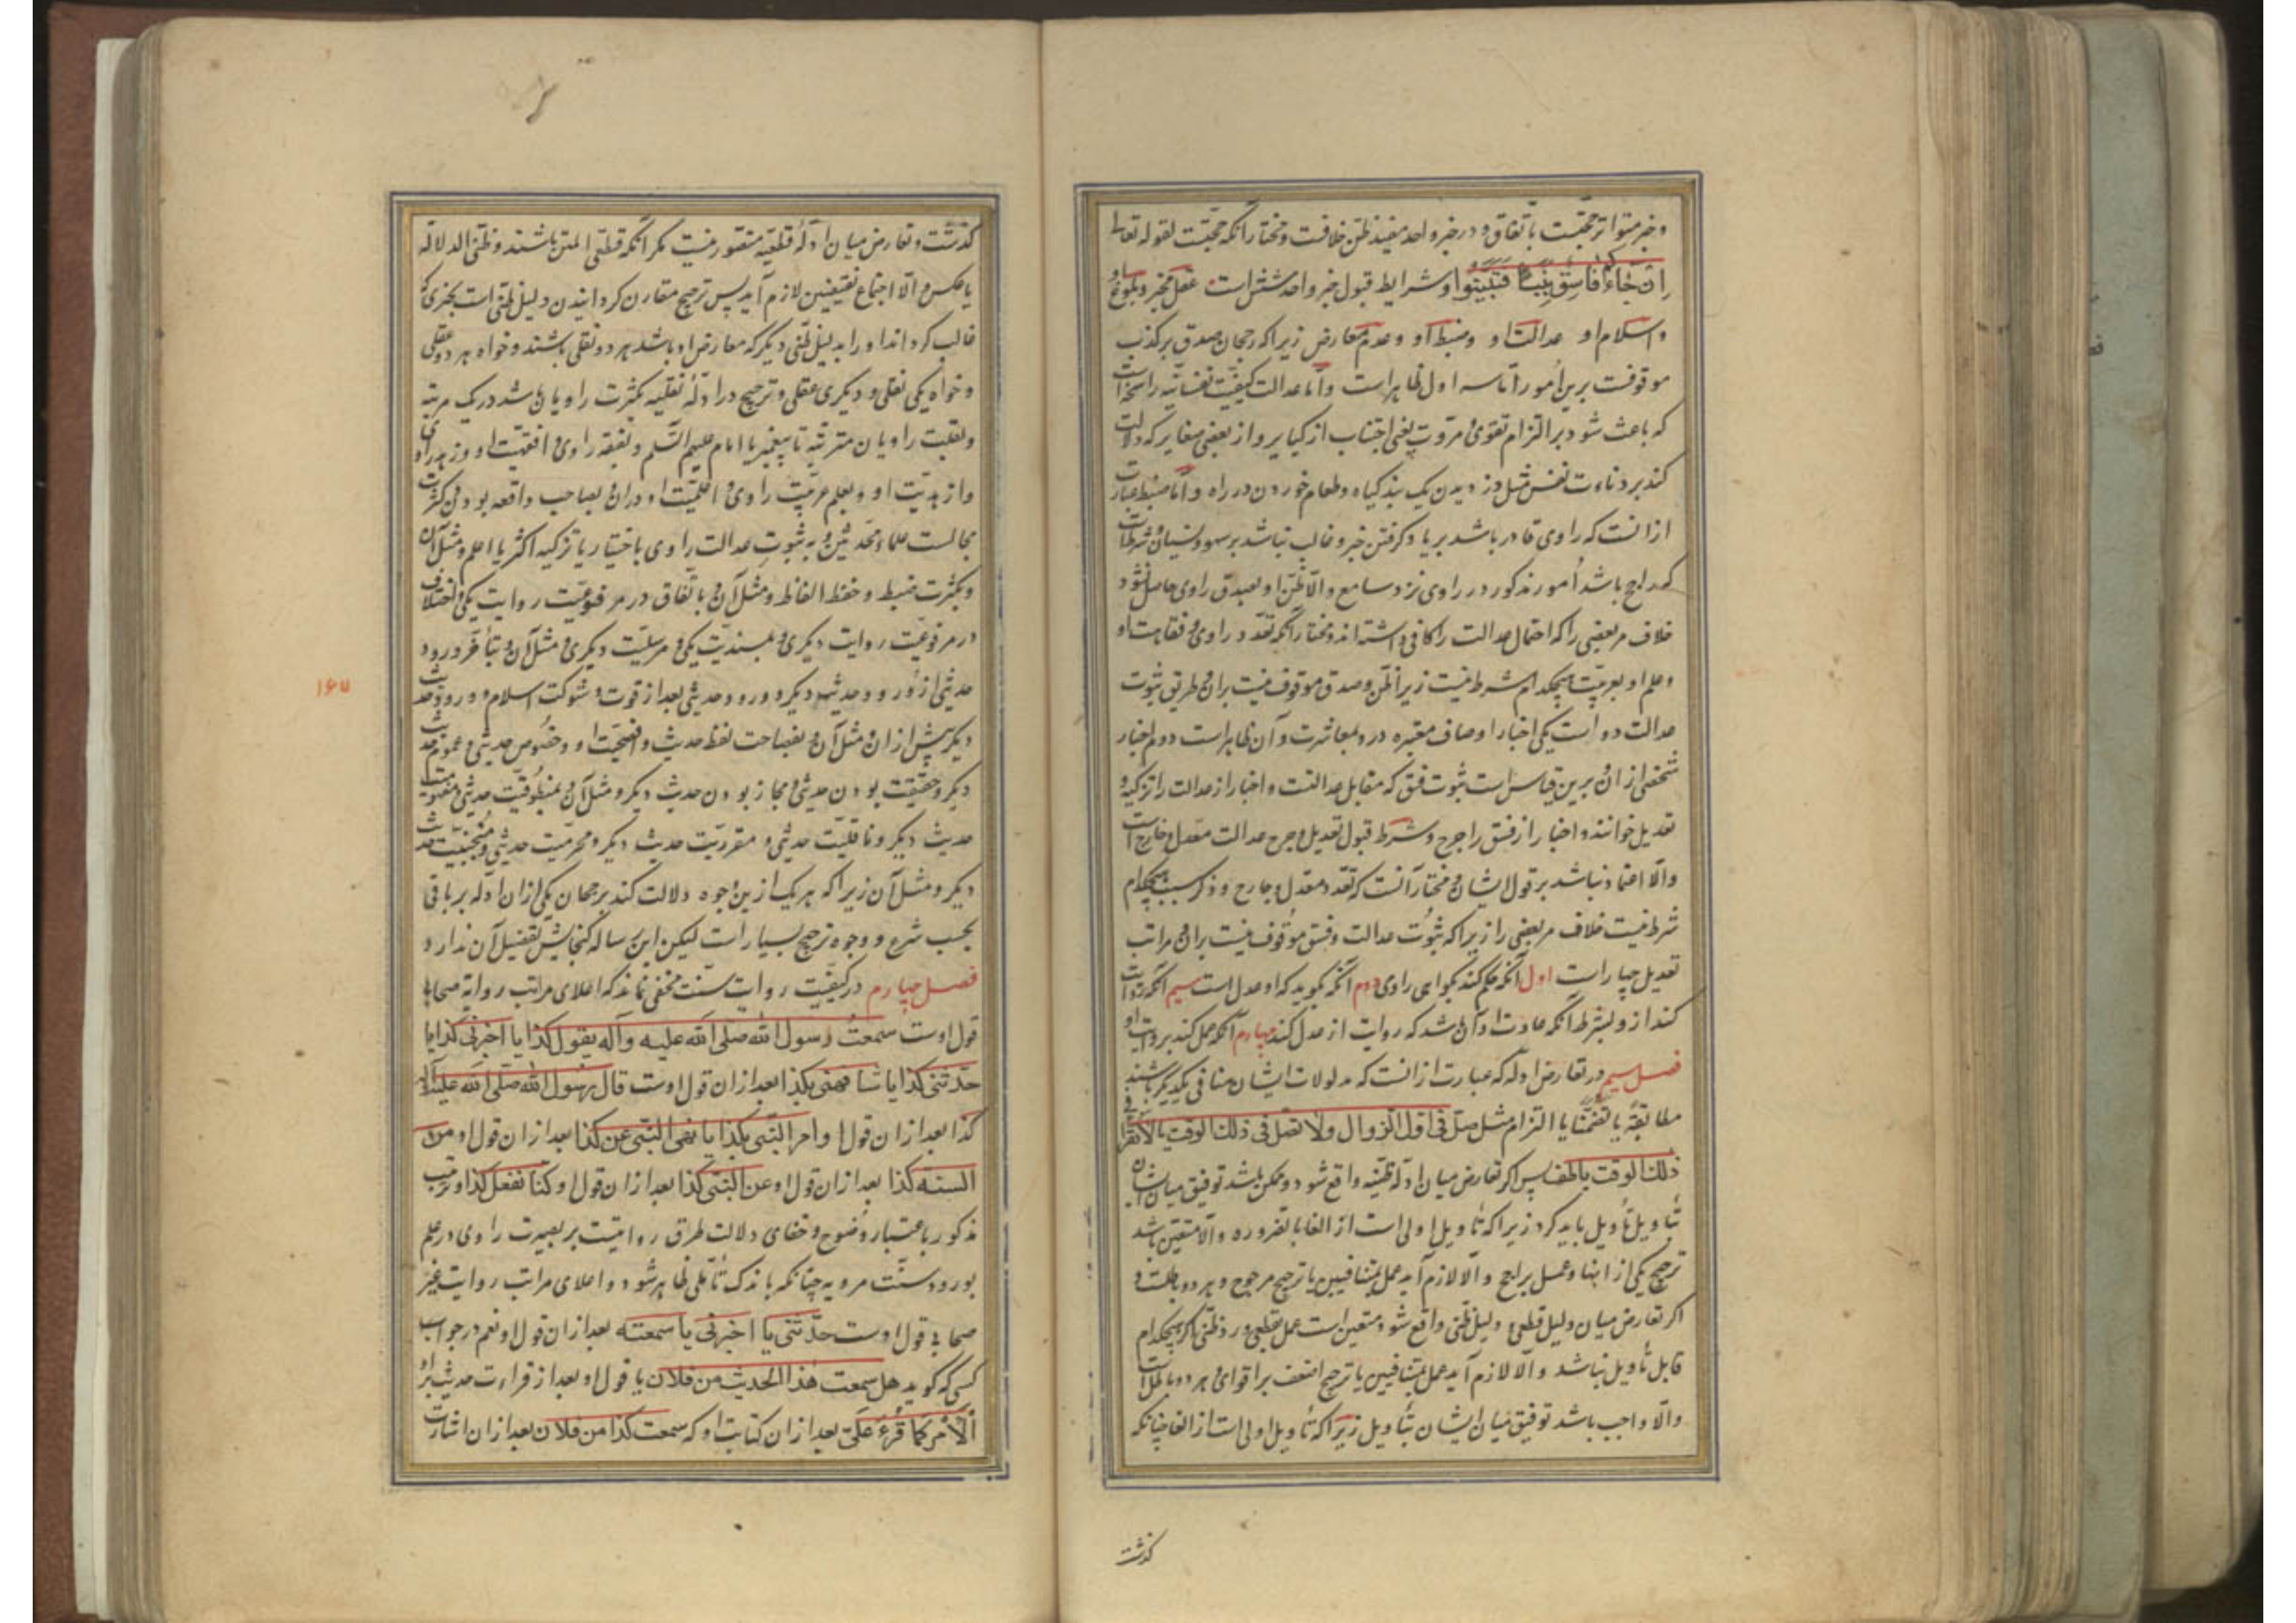 و خبر متواتر حجّتست باتّفاق و در خبر واحد مفید ظنّ خلافست و مختار آنکه حجّتست لقوله تعالی
اِن جَاءَکُم فَاسِقٌ بِنَبَاٍ فَتَبَیَّنُوا و شرایط قبول خبر واحد شش است عقل مخبر و بلوغ او
و اسلام او و عدالت او و ضبط او و عدم معارض زیرا که رجحان صدق بر کذب
موقوفست برین امور امّا سه اول ظاهر است و امّا عدالت کیفیّت نفسانیّه راسخه است
که باعث شود بر التزام تقوی و مروّت یعنی اجتناب از کبایر و از بعضی صغایر که دلالت
کند بر دناءت نفس مثل دزدیدن یک بند کیاه و طعام خوردن در راه و امّا ضبط عبارت
از آنست که راوی قادر باشد بر یاد کرفتن خبر و غالب نباشد بر سهو و نسیان و شرط است
که راجح باشد اُمور مذکور در راوی نزد سامع والّا ظنّ او بصدق راوی حاصل نشود
خلاف مر بعضی را که احتمال عدالت را کافی داشته اند و مختار آنکه تعدّد راوی و فقاهت او
و علم او بعربیّت هیچکدام شرط نیست زیرا ظنّ و صدق موقوف نیست بران و طریق ثبوت
عدالت دو است یکی اخبار اوصاف معتبره در و بمعاشرت و آن ظاهر است دوم اخبار
شخصی از ان و برین قیاس است ثبوت فسق که مقابل عدالتست و اخبار از عدالت را تزکیه و
تعدیل خوانند و اخبار از فسق را جرح و شرط قبول تعدیل و جرح عدالت معدل و جارح است
والّا اعتماد نباشد بر قول ایشان و مختار آنست که تعدّد معدل و جارح و ذکر سبب هیچکدام
شرط نیست خلاف مر بعضی را زیرا که ثبُوت عدالت و فسق موقوف نیست بران و مراتب
تعدیل چهار است اول آنکه حکم کند بکواهی راوی دوم آنکه بکوید که او عدل است سیم آنکه روایت
کند از و بشرط آنکه عادت او آن باشد که روایت از عدل کند چهارم آنکه عمل کند بروایت او
فصل سیم در تعارض ادله که عبارت از انست که مدلولات ایشان منافی یکدیکر باشند
مطابقةً یا تضمّنا یا التزام مثل صلّ فی اوّل الزّوال ولا تصل فی ذلک الوقت یا لا تقرا فی
ذلک الوقت یا پس اکر تعارض میان ادلهٔ ظنّیّه واقع شود و ممکن باشد توفیق میان ایشان
بتاویل تأویل باید کرد زیرا که تأویل اولی است از الغا بالضروره والّا متعین باشد
ترجیح یکی از اینها و عمل براجح والّا لازم آید عمل بمتنافیین یا ترجیح مرجوح و هر دو باطلست و
اکر تعارض میان دلیل قطعی و دلیل ظنّی واقع شود متعین است عمل بقطعی و ردّ ظنّی اکر هیچکدام
قابل تأویل نباشد والّا لازم آید عمل بمتنافیین یا ترجیح اضعف بر اقوی و هر دو باطل است
والّا واجب باشد توفیق میان ایشان بتأویل زیرا که تأویل اولی است از الغا چنانکه
کذشت
کذشت و تعارض میان ادلّهٔ قطعیّه متصوّر نیست مکر آنکه قطعی المتن باشند و ظنّی الدلاله
یا عکس والّا اجتماع نقیضین لازم آید پس ترجیح مقارن کردانیدن دلیل ظنّی است بچیزی که
غالب کرداند او را بدلیل ظنّی دیکر که معارض او باشد هر دو نقلی باشند و خواه هر دو عقلی
و خواه یکی نقلی و دیکری عقلی و ترجیح در ادلّهٔ نقلیه بکثرت راویان باشد در یک مرتبه
و بقلّت راویان مترتّبه تا پیغمبر یا امام علیهم السّلم و بفقه راوی و افقهیّت او و زهد راوی
و ازهدیّت او و بعلم عربیّت راوی و اعلمیّت او دران و بصاحب واقعه بودن و کثرت
مجالست علما و محدّثین و به ثبوت عدالت راوی باختیار یا تزکیه اکثر یا اعلم و مثل آن
و بکثرت ضبط و حفظ الفاظ و مثل آن و باتّفاق در مرفوعیّت روایت یکی و اختلاف
در مرفوعیّت روایت دیکری و بمسندیّت یکی و مرسلیّت دیکری و مثل آن و بتأخّر ورود
حدیثی از ورود حدیث دیکر و ورود حدیثی بعد از قوت و شوکت اسلام و ورود حدیث
دیکر پیش از ان و مثل آن و بفصاحت لفظ حدیث و افصحیّت او و خصُوص حدیثی و عموم حدیث
دیکر و حقیقت بودن حدیثی و مجاز بودن حدیث دیکر و مثل آن و بمنطوقیّت حدیثی و مفهومیّت
حدیث دیکر و ناقلیّت حدیثی و مقرریّت حدیث دیکر و محرمیّت حدیثی و حدیث
دیکر و مثل آن زیرا که هر یک از این وجوه دلالت کند بر رجحان یکی از ان ادله بر باقی
بحسب شرع و وجوه ترجیح بسیار است لیکن این رساله کنجایش تفصیل آن ندارد
فصل چهارم در کیفیّت روایت سنّت مخفی نماند که اعلای مراتب روایة صحابی
قول اوست سمعتُ رسول الله صلی الله علیه وآله یقول کذا یا اخبرنی کذا یا
حدّثنی کذا یا شافهنی بکذا بعد از ان قول اوست قال رسُول الله صلّی الله علیه وآله
کذا بعد از ان قول او امر النّبی بکذا یا نهی النّبی عن کذا بعد از ان قول او من
السنه کذا بعد از ان قول او عن النّبی کذا بعد از ان قول او کنّا نفعل کذا و ترتیب
مذکور باعتبار وضوح و خفای دلالت طرق روایتست بر بصیرت راوی در علم
بورود سنّت مرویه چنانکه باندک تأمّلی ظاهر شود و اعلای مراتب روایت غیر
صحابی قول اوست حدّثنی یا اخبرنی یا سمعته بعد از ان قول او نعم در جواب
کسی که کوید هل سمعت هٰذا الحدیث من فلان یا قول او بعد از قراءت حدیث بر او
اَلْاَمْرُ کَمَا قُرِءَ عَلَیّ بعد از ان کتابت او که سمعت کذا من فلان بعد از ان اشارت
۱۶۷